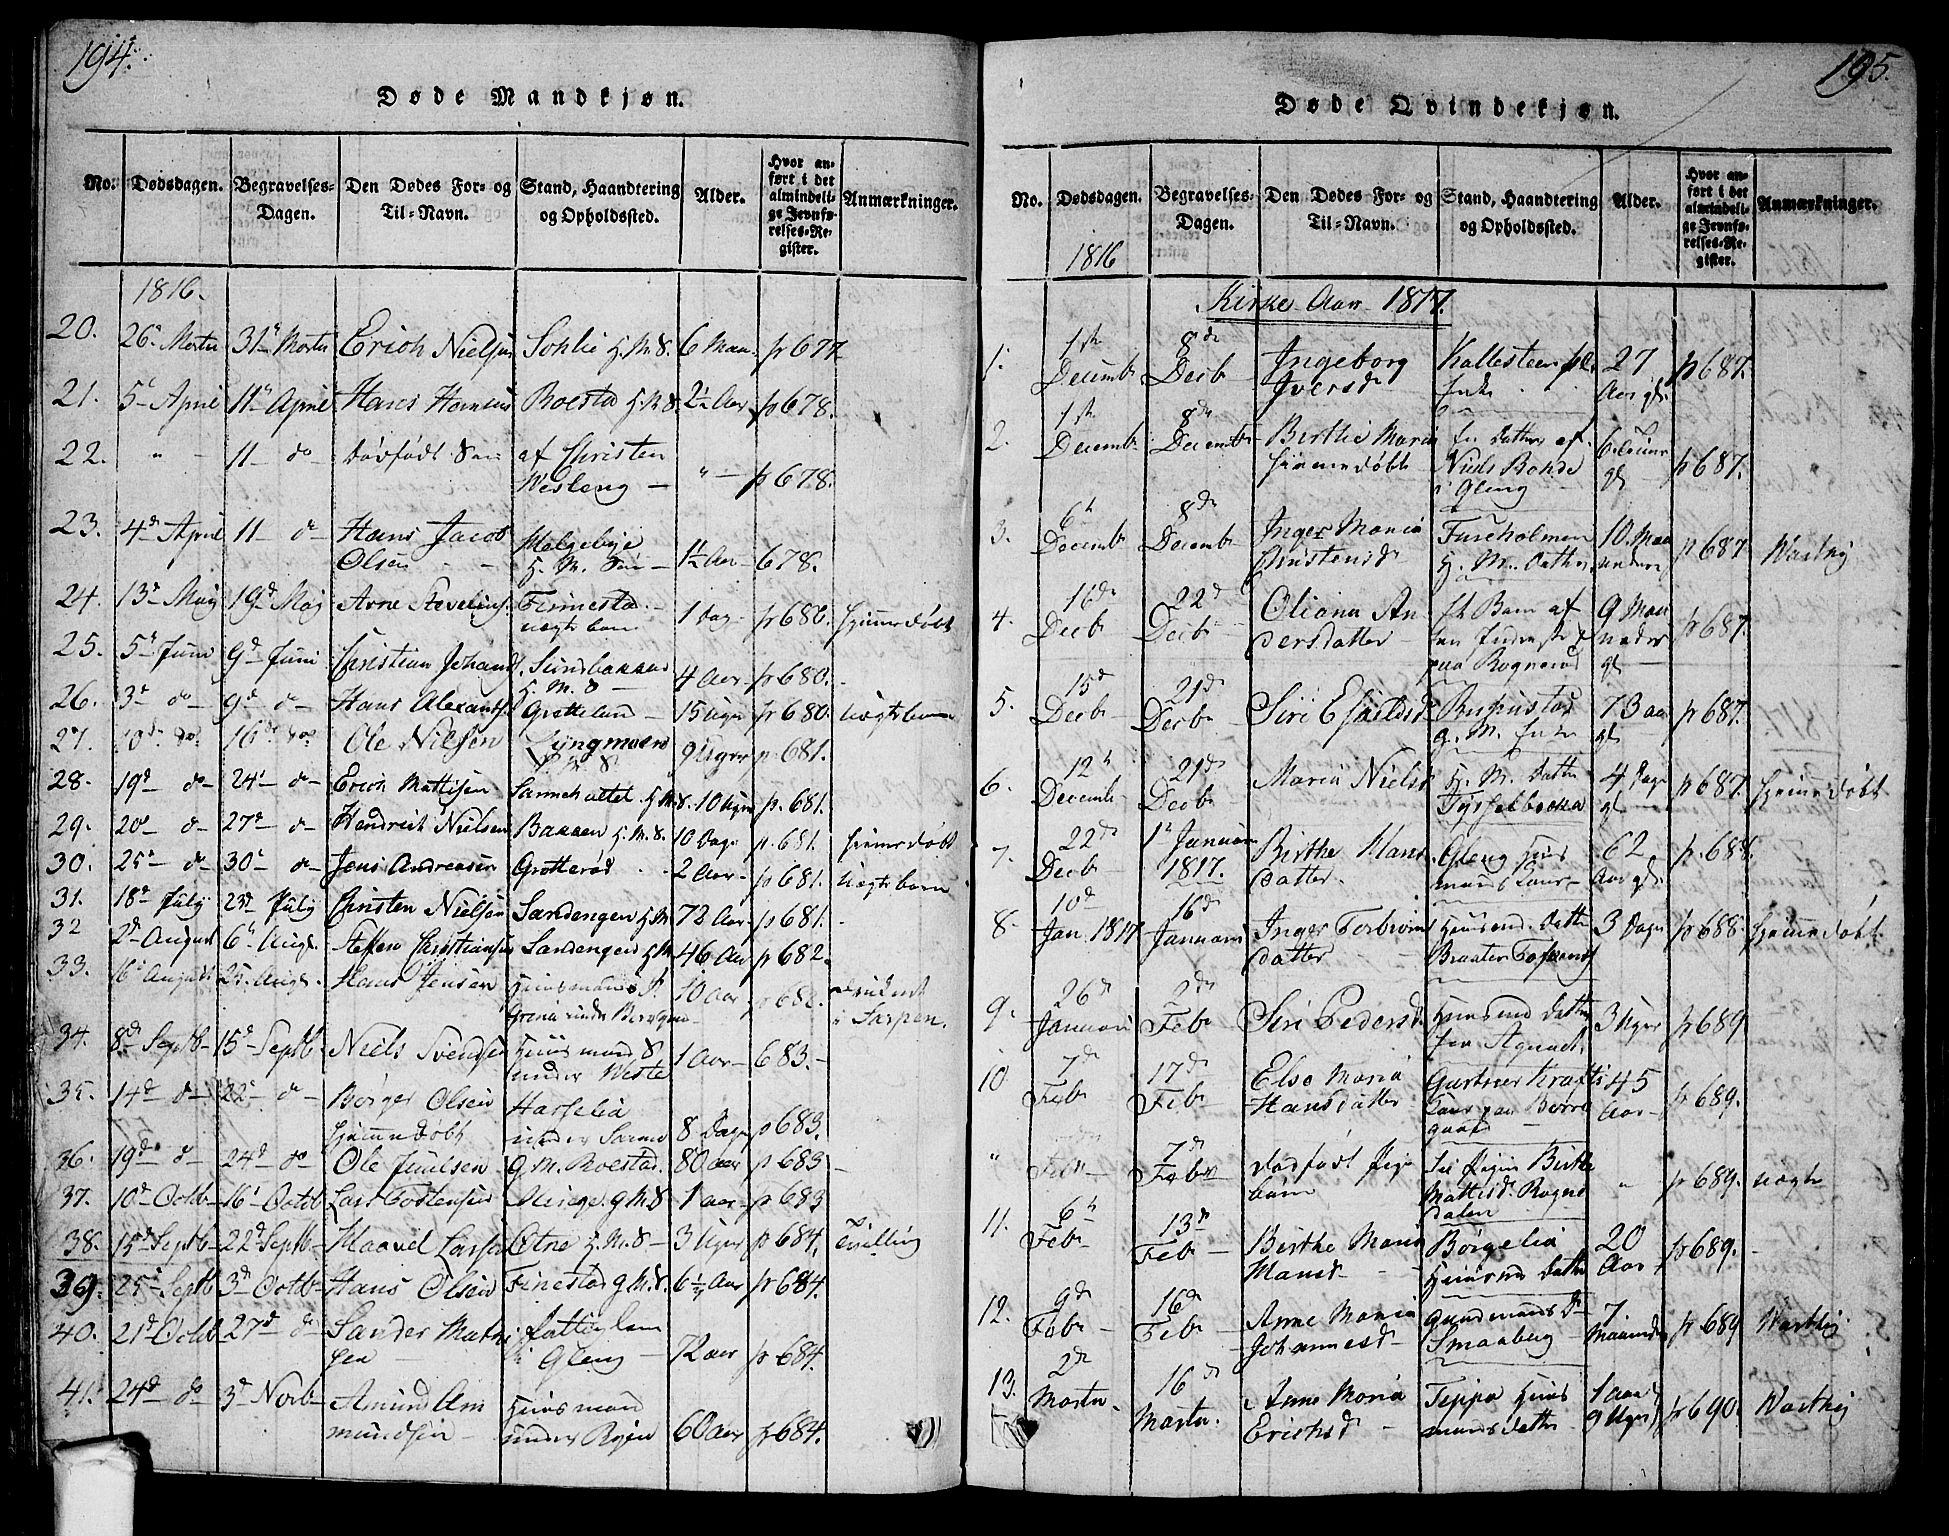 194.
Døde Mandkjøn.
No. Dødsdagen. Begravelses-Dagen. Den Dødes For- og Til-Navn. Stand, Haandtering og Opholdssted. Alder. Hvor anført i det almindelige Jevnførelses-Register. Anmærkninger.
1816.
20. 26. Martii 31. Martii Erich Nielsen H.M.S. 6 p 677
21. 5 April 11 April Hans Roestad H.M.S. 2½ Aar p 678.
22. " 11 do Dødfødt Søn af Christen Wesleng " p 678.
23. 4de April 11 do Hans Jacob
Olsen H.M. 1½ Aar 678.
24. 13 Maj 19d Maj Arne Finnestad
uægte barn 1 Dag p 680. hjemmedøbt
25. 5 Juni 9d Juni Christian Johans. Sundbakken
H.M.S 4 Aar p 680.
26. 3d do 9d do Hans Alexands. Grotteland 15 Uger p 680. uægte barn
27. 10de do 16de do Ole Nielsen Lyngmoen
H.M.S 9 Uger p. 681.
28. 19d do 24 do Erich Mattisen H.M.S. 10 Uger p. 681.
29. 20 do 27d do Hendrick Nielsen Bakken H.M.S. 10 Dage p. 681. hjemmedøbt
30. 25 do 30 do Jens Andreasen Grotterød 2 Aar p 681. uægte barn
31. 18d July 23d July Christen Nielsen Sandengen H.M 72 Aar p 681.
32 2d August 6 Aug. Christiansen Sandengen H.M 46 Aar p 682.
33. 16 August 25. Aug. Hans Jensen Huusmands S.
under 10 Aar p 682. druknet
i Sarpen.
34. 8d Septb 15d Septb Niels Svendsen Huusmand S
under Weste 1 Aar 683.
35. 14d do 22 do Børger Olsen
hjemmedøbt
under 8 Dage p 683.
36. 19d do 24d do Ole Juulsen G.M. Roestad. 80 aar p 683
37. 10d Octb 16 Octb Lars Tostensen G.M.S 1 aar p 683
38. 15d Septb 22d Septb Larsen Otne H.M.S 3 Uger p 684. Tvilling
39. 25 Septb 3d Octb Hans Olsen Finestad G.M.S. 6½ Aar p 684.
40. 21d Octb 27d do Sander
sen fattiglem
i Gleng 72 aar p 684.
41. 24d do 3d Novb Amund Am
mundsen Huusmand
under 60 aar p 684.
195.
Døde Qvindekjøn.
No. Dødsdagen. Begravelses-Dagen. Den Dødes For- og Til-Navn. Stand, Haandtering og Opholdssted. Alder. Hvor anført i det almindelige Jevnførelses-Register. Anmærkninger.
1816
Kirke Aar 1817.
1. 1ste Decembr 8de Decb Ingeborg
Iversd Kallesteen
Enke 27
Aar gl. p 687.
2. 1ste Decembr 8de Decembr Birthe Maria
hjemmedøbt en Datter af
Niels Bohde
i Gleng 6
gl p 687.
3. 6te Decembr 8de Decembr Inger Maria
Christensd Fureholmen
H. M. Datter 10. Maa
neder p 687
4. 16de Decbr 22de Decbr Oliana An
dersdatter et Barn af
9 Maa
neder
gl p 687.
5. 15d Decbr 21de Decbr Siri
G. M. Enke 73 aar
gl p 687.
6. 12te Decembr 21de Decbr Maria Nielsd H. M. Datter
4 Dage
gl p 687. hjemmedøbt
7. 22de Decbr 1 Januari
1817. Birthe Hans
datter. Gleng Huus
mands 62
Aar gl. p. 688.
8. 10de Jan. 1817 16de Januari Inger Torbiørns
datter Huusmd. Datter
Braaten 3 Dage p 688. hjemmedøbt
9. 26de Januari 2de Febr Siri Pedersd Huusmd Datter
3 Uger p 689
10 7de Febr 17de Febr Else Maria
Hansdatter Gartner
paa Borre
gaard 45
Aar p 689.
" Febr 7de Febr dødfødt Pige
barn Birthe
Mattisd
dalen " p 689. uægte
11. 6te Febr 13de Febr Birthe Maria
Hansd Børgelia
Huusmd Datter 20
Aar p 689.
12. 9de Febr 16de Febr Anne Maria
Johannesd
Smaaberg 7
Maaneder p 689
13. 2de Martii 16de Martii Anne Maria
Erichsd Huus
mands datter 1 aar
9 Uger p 690.